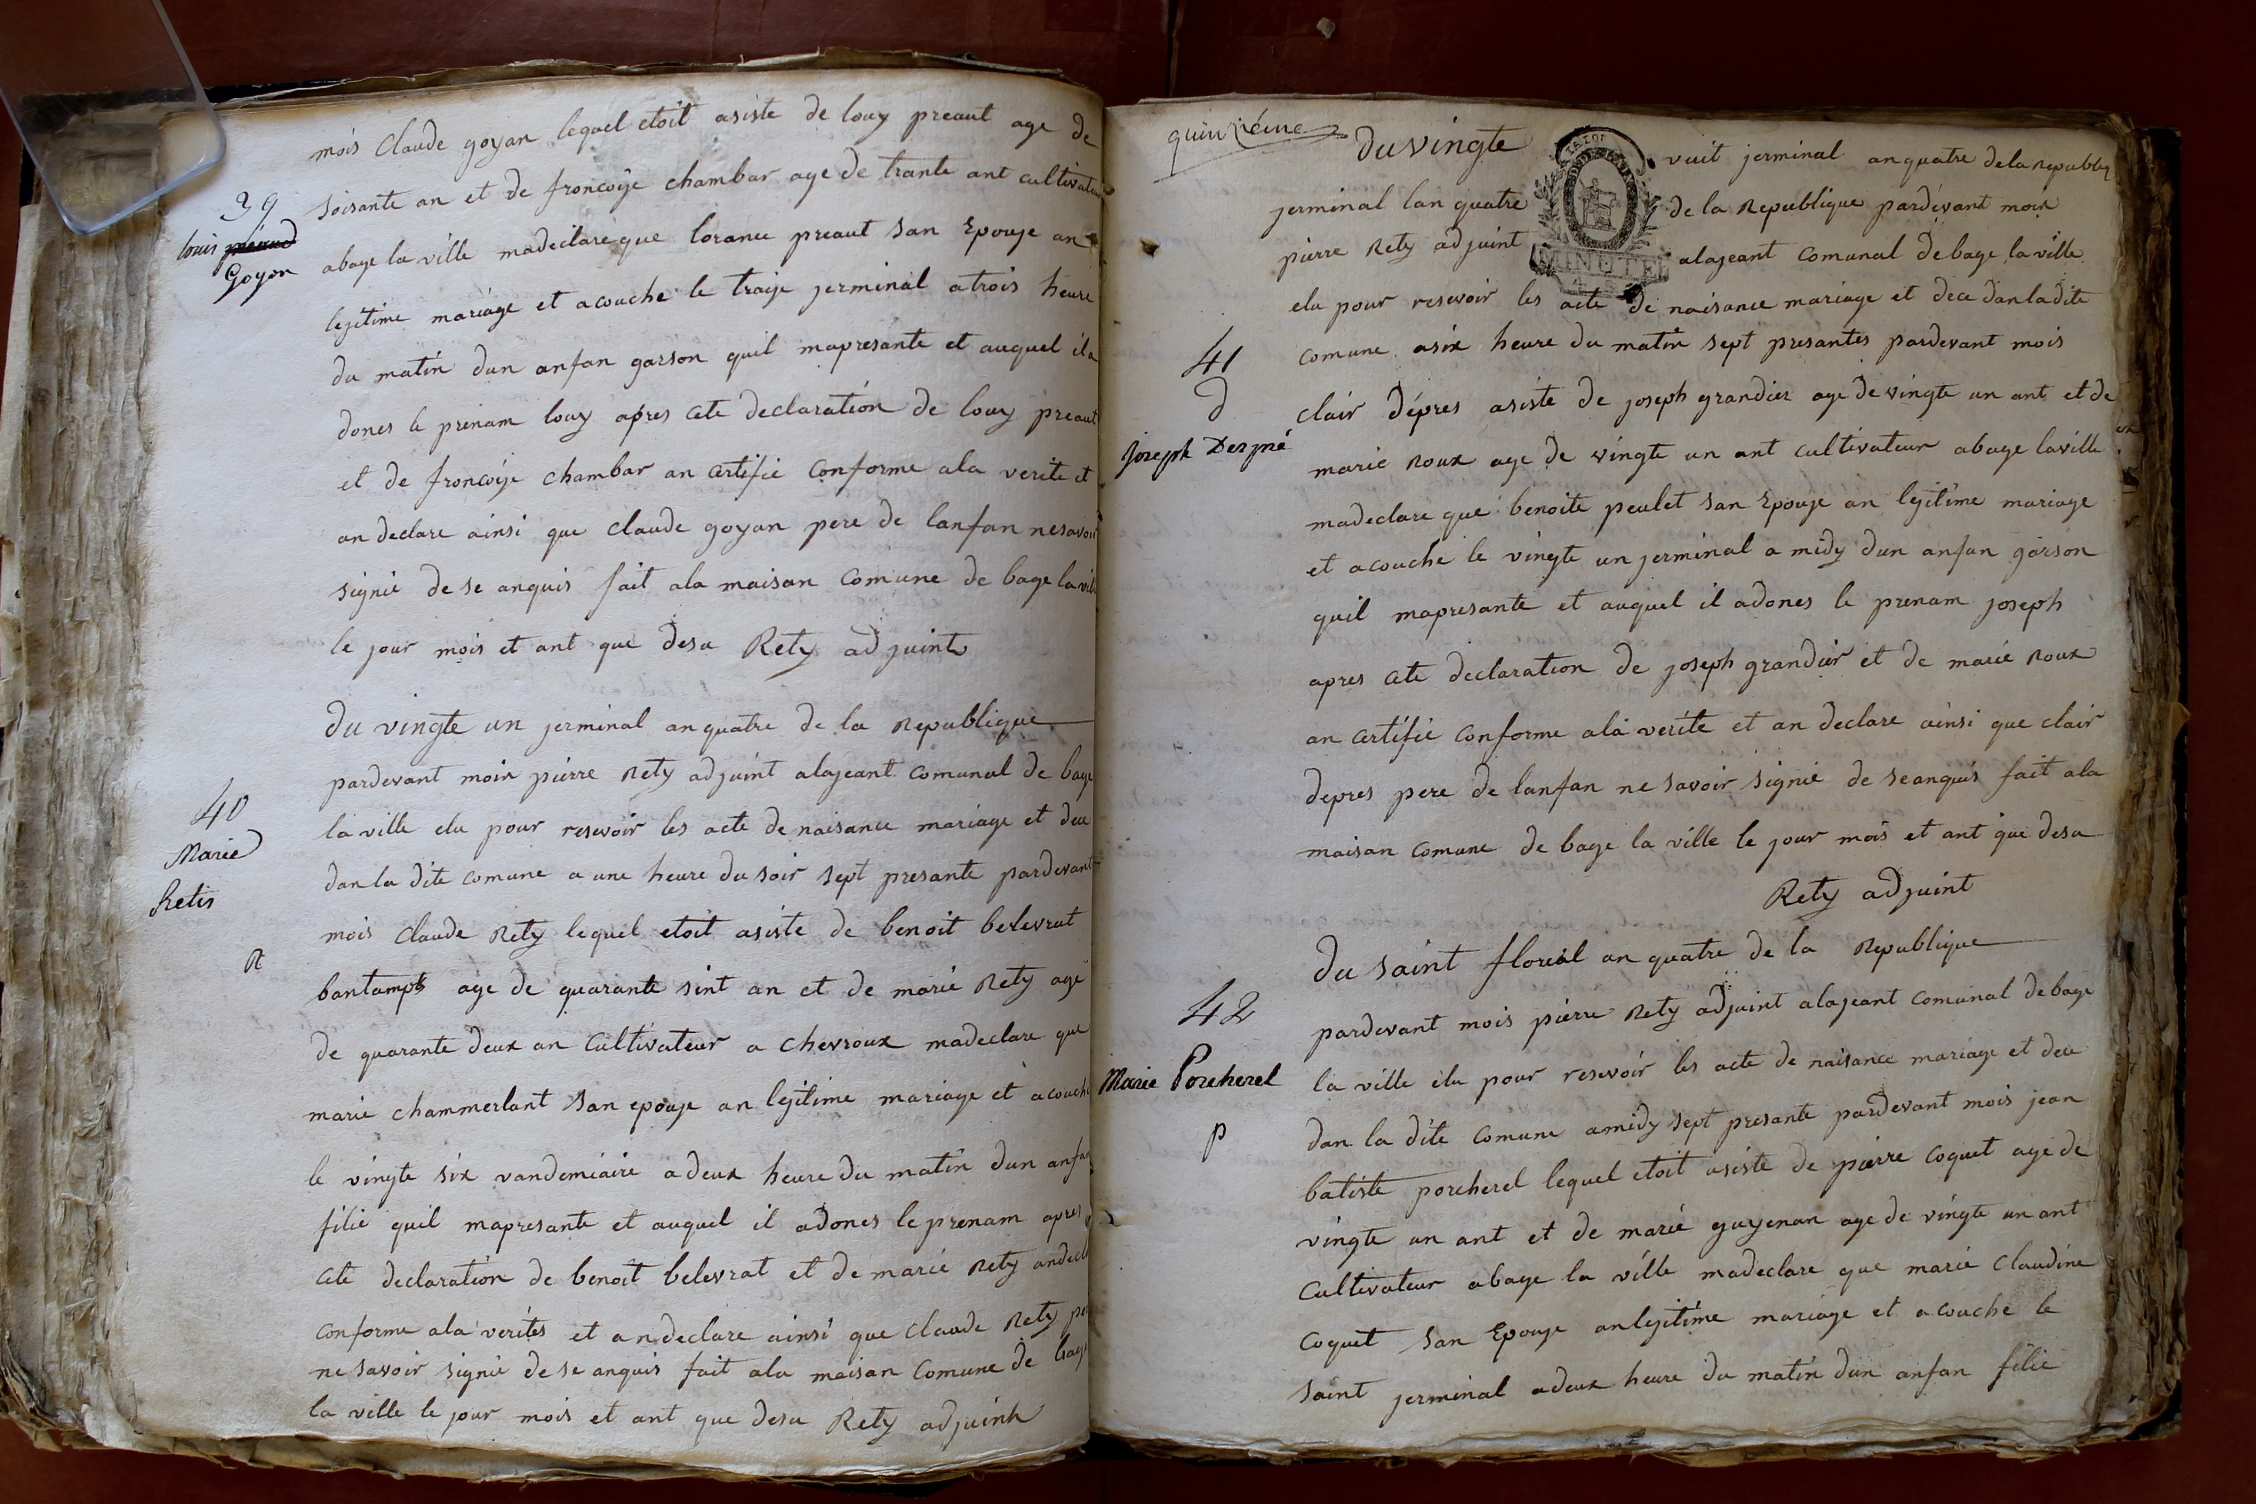 mois Claude goyan lequel etoit asiste de louy preaut age de
soisante an et de froncoije chambar age de trante ant cultivateur
39
louis
Goyon
abage la ville madeclare que lorance preaut san Epouje an
lejitime mariage et acouche le traije jerminal atrois heure
du matin dun anfan garson quil mapresante et auquel il a
dones le prenam louy apres cete declaration de louy preaut
et de froncoije chambar an certifie conforme ala verite et
an declare ainsi que claude goyan pere de lanfan ne savoir
signie de se anquis fait ala maisan comune de bage la ville
le jour mois et ant que desu Rety adjuint
du vingte un jerminal an quatre de la Republique
pardevant moix pierre Rety adjuint alajeant comunal de bage
40
Marie
Retis
la ville elu pour resevoir les acte de naisance mariage et dece
dan la dite comune a une heure du soir sept presante pardevant
mois claude Rety lequel etoit asiste de benoit berlevrat
R
bantamps age de quarante sint an et de marie Rety age
de quarante deux an Cultivateur a chevroux madeclare que
marie chammerlant san epouje an lejitime mariage et acouche
le vingte six vandemiaire adeux heure du matin dun anfan
filie quil mapresante et auquel il adones le prenam apres
cete declaration de benoit belevrat et de marie Rety andecl
conforme ala verites et an declare ainsi que claude Rety per
ne savoir signie de se anquis fait ala maisan comune de bage
la ville le jour mois et ant que desu Rety adjuint
quinzième
du vingte vuit jerminal an quatre de la republiq
jerminal lan quatre de la Republique pardevant moix
pierre Rety adjuint alajeant comunal de bage la ville
MINUTE
elu pour resevoir les acte de naisance mariage et dece dan la dite
comune asix heure du matin sept presantes pardevant mois
41
d
Joseph Derpré
clair dépres asiste de joseph grandier age de vingte un ant et de
marie Roux age de vingte un ant cultivateur abage laville
madeclare que benoite peulet san Epouje an lejitime mariage
et acouche le vingte un jerminal a midy dun anfan garson
quil mapresante et auquel il adones le prenam joseph
apres cete declaration de joseph grandier et de marie Roux
an certifie conforme ala verite et an declare ainsi que clair
depres pere de lanfan ne savoir signie de seanquis fait ala
maisan comune de bage la ville le jour mois et ant que desu
Rety adjuint
du saint florial an quatre de la Republique
pardevant mois pierre Rety adjuint alajeant comunal de bage
42
Marie Porcherel
p
la ville elu pour resevoir les acte de naisance mariage et dece
dan la dite comune amidy sept presante pardevant mois jean
batiste porcherel lequel etoit asiste de pierre coquet age de
vingte un ant et de marie guyenan age de vingte un ant
Cultivateur abage la ville madeclare que marie claudine
coquet san Epouje anlejitime mariage et acouche le
saint jerminal adeux heure du matin dun anfan filie